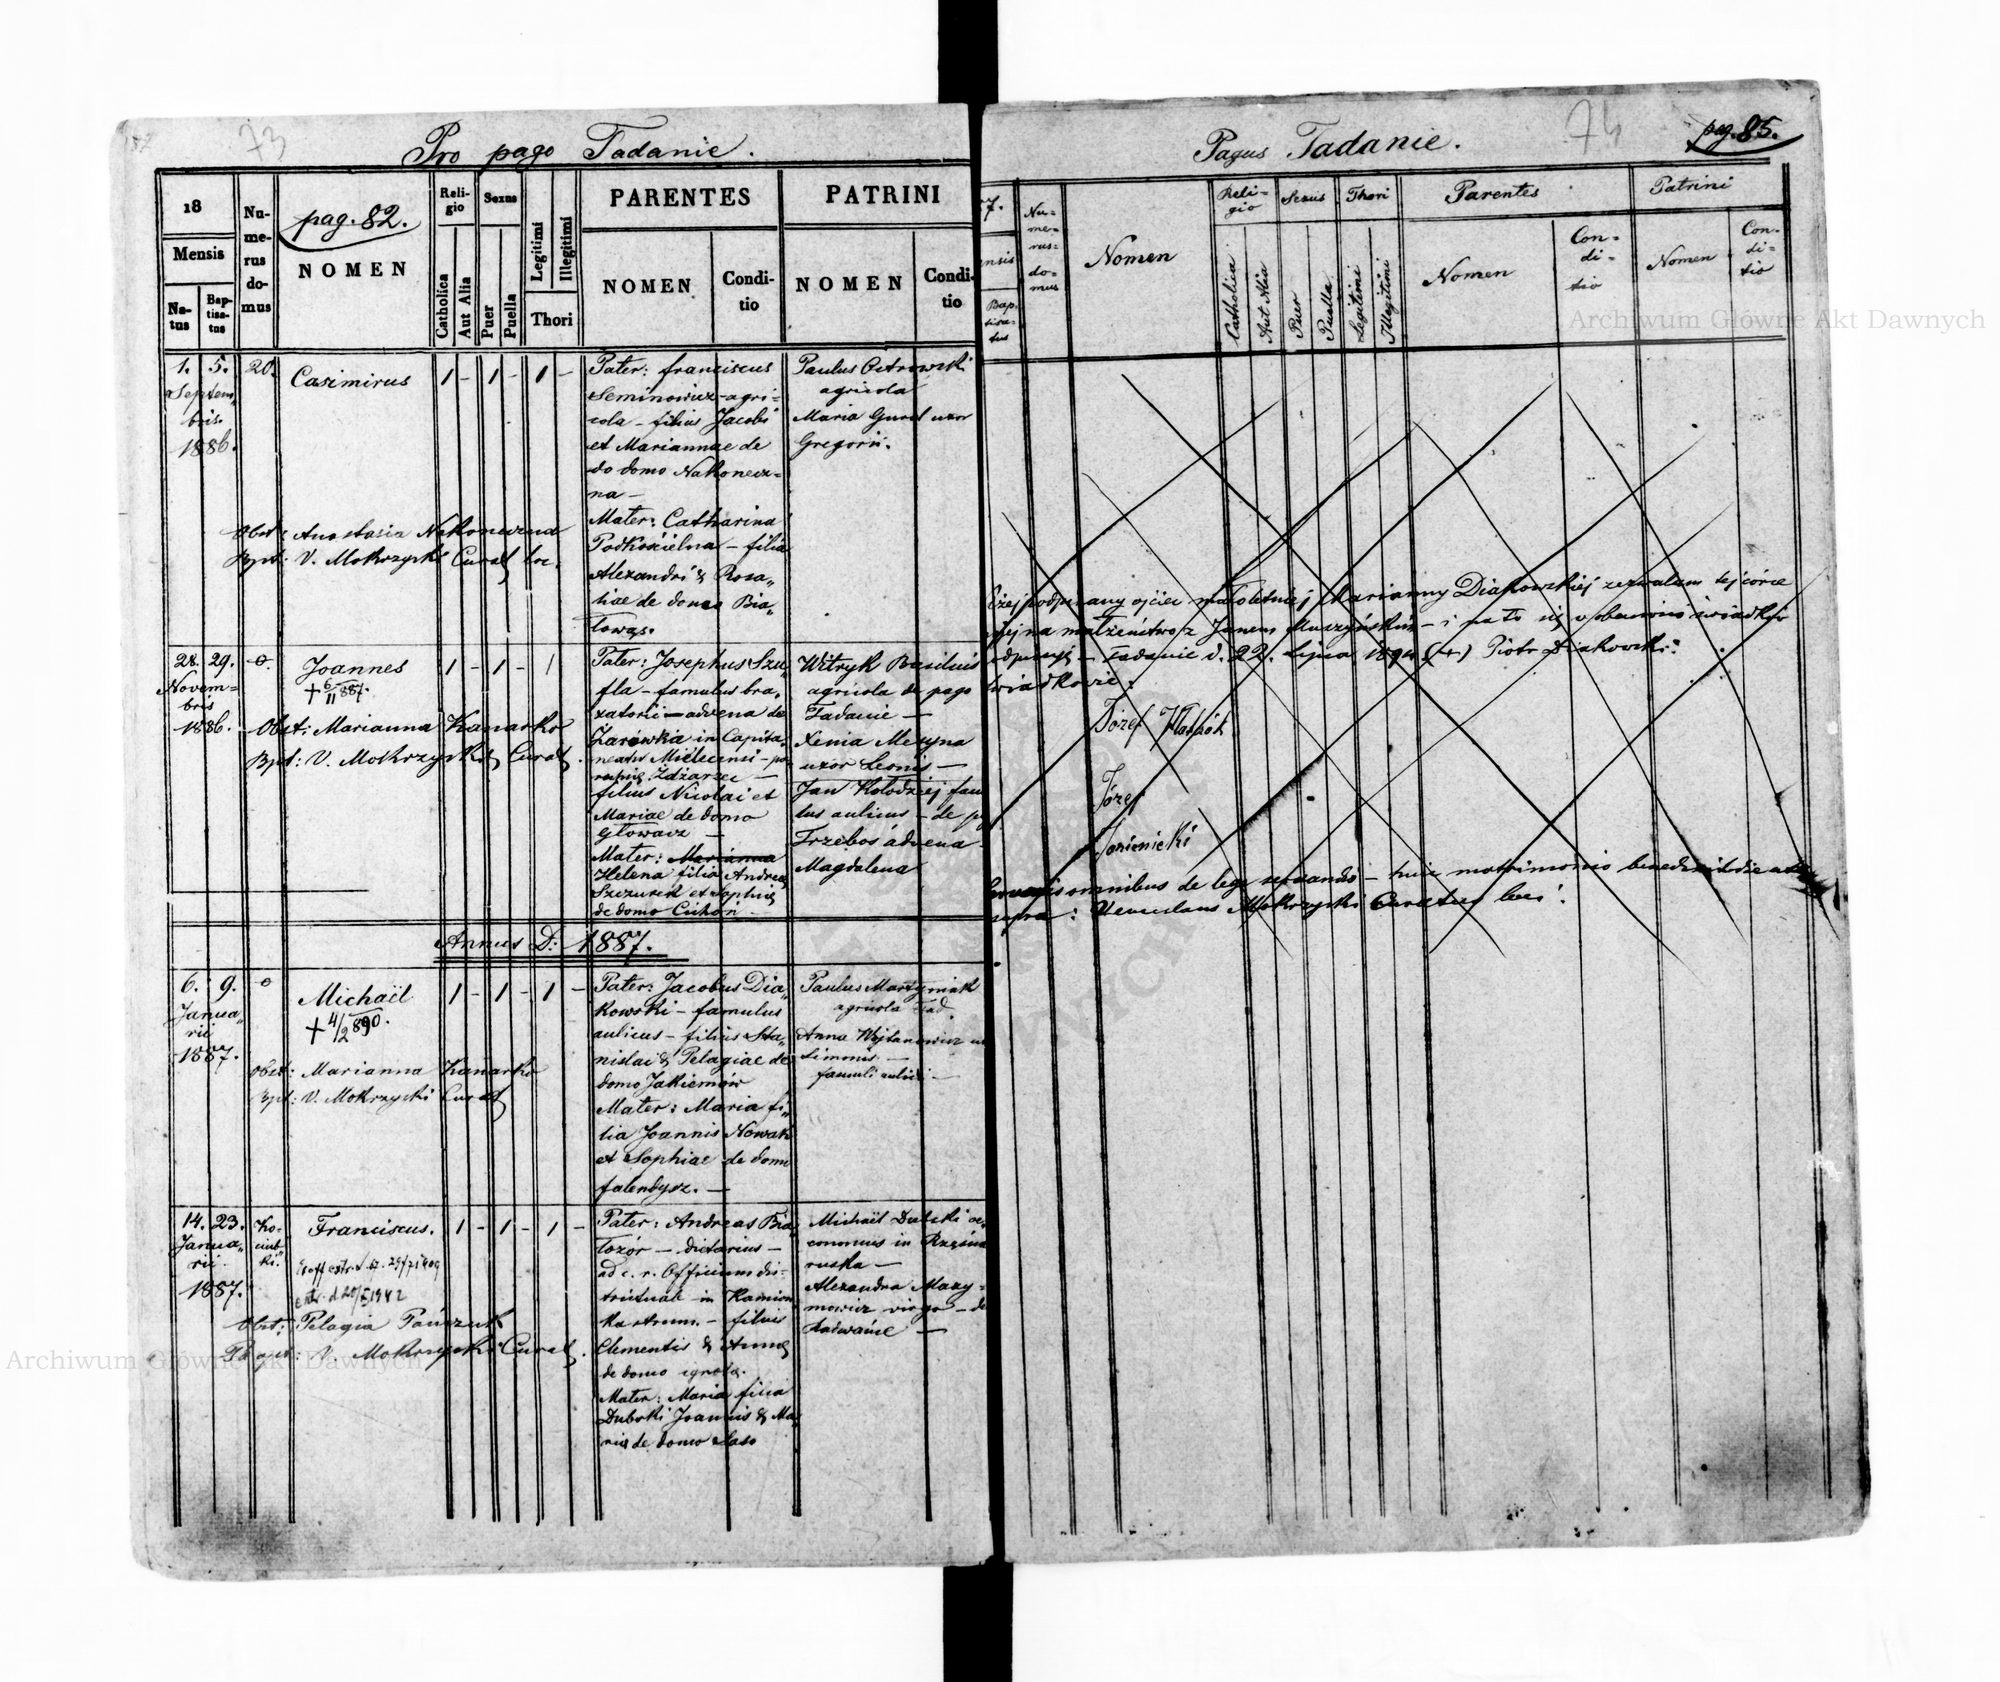 73
Pro pago Tadanie.
18
Mensis
Na-
tus
Bap-
tisa-
tus
Nu-
me-
rus
do-
mus
pag. 82.
NOMEN
Reli-
gio
Catholica
Aut Alia
Sexus
Puer
Puella
Legitimi
Illegitimi
Thori
PARENTES
NOMEN
Condi-
tio
PATRINI
NOMEN
Condi-
tio
1. 5.
Septem
bris
1886.
20.
Casimirus
1 - 1 - 1 -
Obst: Anastasia Nakoneczna
Bpt: V. Mokrzycki Curat loc.
Pater: Franciscus
Seminowicz - agri-
cola - filius Jacobi
et Mariannae de
do domo Nakonecz-
na -
Mater: Catharina
Podkościelna - filia
Alexandri & Rosa"
liae de domo Bia"
łowąs.
Paulus Ostrowski
agricola
Maria Gural uxor
Gregorii.
28. 29.
Novem-
bris
1886.
0.
Joannes
+ 6/II 887.
1 - 1 - 1
Obst: Marianna Kanarko
Bpt: V. Mokrzycki Curat.
Pater: Josephus Szu"
fla - famulus bra"
xatorii - advena de
Żarówka in Capita"
neatu Mielecensi - pa
rochia Zdżarzec -
filius Nicolai et
Mariae de domo
Głowacz -
Mater: Marianna
Helena filia Andreae
Szczurek et Sophiae
de domo Cichoń -
Witryk Basilius
agricola de pago
Tadanie -
Xenia Meryna
uxor Leonis -
Jan Kołodziej fam
lus aulicus - de p
Trzeboś advena
Magdalena
Annus D: 1887.
6. 9.
Janua"
rii
1887.
0
Michaël
+ 4/2 890.
1 - 1 - 1 -
Obst: Marianna Kanarko
Bpt: V. Mokrzycki Curat
Pater: Jacobus Dia"
kowski - famulus
aulicus - filius Sta"
nislai & Pelagiae de
domo Jakiemów
Mater: Maria fi"
lia Joannis Nowak
et Sophiae de domo
Falendysz. -
Paulus Martyniak
agricola Tad.
Anna Wojtanowicz u
Simonis -
famuli aulici -
14. 23.
Janua"
rii
1887.
Franciscus.
1 - 1 - 1 -
Obst: Pelagia
Bapt: V. Mokrzycki Curat.
Pater: Andreas Bia"
łozór - dietarius -
ad c. r. Officium dis-
trictuale in Kamion
ka strum. - filius
Clementis & Annae
de domo ignota.
Mater: Maria filia
Dubski Joannis & Ma"
riae de domo
Michaël Dubski oe"
conomus in Rzęsna
ruska -
Alexandra Maxy-
mowicz virgo - de
-
74
Pagus Tadanie.
pag. 85.
7.
ensis
Bap-
tisa-
tus
Nu-
me-
rus-
do-
mus
Nomen
Reli-
gio
Catholica
Aut Alia
Sexus
Puer
Puella
Thori
Legitimi
Illegitimi
Parentes
Nomen
Con-
di-
tio
Patrini
Nomen
Con-
di-
tio
iżej podpisany ojciec małoletniej Marianny Diakowskiej zezwalam tej córce
mej na małżeństwo z Janem Muszyńskim - i na to się w obecności świadków
podpisuję - Tadanie d. 22. Lipca (+) Piotr Diakowski
świadkowie:
Józef
Józef
Servatis omnibus de lege servandis - huic matrimonio benedixit die
supra: Venceslaus Mokrzycki Curatus loci.
Archiwum Główne Akt Dawnych
Archiwum Główne Akt Dawnych